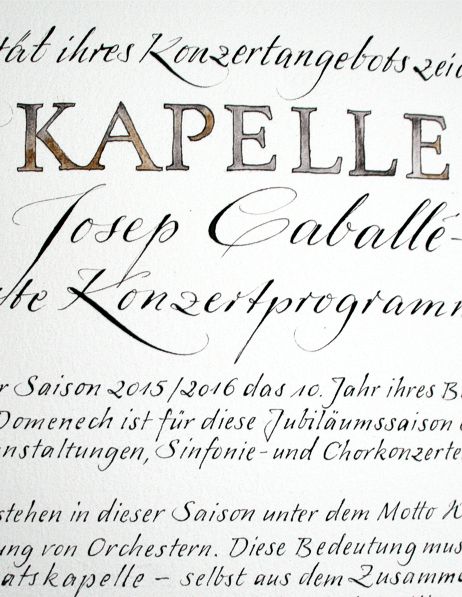 tät ihres Konzertangebots zei
KAPELLE
Josep Caballé-
te Konzertprogramm
r Saison 2015/2016 das 10. Jahr ihres B
Domenech ist für diese Jubiläumssaison
nstaltungen, Sinfonie- und Chorkonzerte
stehen in dieser Saison unter dem Motto
ung von Orchestern. Diese Bedeutung mus
atskapelle – selbst aus dem Zusamm